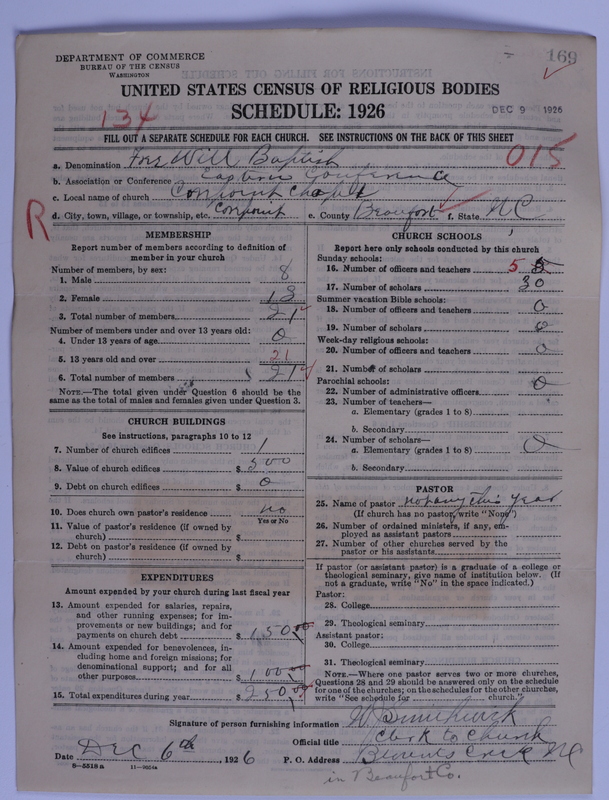 DEPARTMENT OF COMMERCE
BUREAU OF THE CENSUS
WASHINGTON
169
UNITED STATES CENSUS OF RELIGIOUS BODIES
SCHEDULE: 1926
DEC 9 1926
134
FILL OUT A SEPARATE SCHEDULE FOR EACH CHURCH. SEE INSTRUCTIONS ON THE BACK OF THIS SHEET
015
a. Denomination Free Will Baptish
b. Association or Conference Eastern Conference
c. Local name of church Corepoint Chaple
d. City, town, village, or township, etc. Corepoint e. County Beaufort f. State N C
R
MEMBERSHIP
Report number of members according to definition of
member in your church
Number of members, by sex:
1. Male 8
2. Female 13
3. Total number of members 21
Number of members under and over 13 years old:
4. Under 13 years of age 0
5. 13 years old and over 21
6. Total number of members 21
NOTE.—The total given under Question 6 should be
same as the total of males and females given under Question 3.
CHURCH BUILDINGS
See instructions, paragraphs 10 to 12
7. Number of church edifices 1
8. Value of church edifices $ 500
9. Debt on church edifices $ 0
10. Does church own pastor's residence no
Yes or No
11. Value of pastor's residence (if owned by
church) $
12. Debt on pastor's residence (if owned by
church) $
EXPENDITURES
Amount expended by your church during last fiscal year
13. Amount expended for salaries, repairs,
and other running expenses; for im-
provements or new buildings; and for
payments on church debt $ 150.00
14. Amount expended for benevolences, in-
cluding home and foreign missions; for
denominational support; and for all
other purposes $ 100.00
15. Total expenditures during year $ 250.00
CHURCH SCHOOLS
Report here only schools conducted by this church
Sunday schools:
16. Number of officers and teachers 5 5
17. Number of scholars 30
Summer vacation Bible schools:
18. Number of officers and teachers 0
19. Number of scholars 0
Week-day religious schools:
20. Number of officers and teachers 0
21. Number of scholars
Parochial schools:
22. Number of administrative officers 0
23. Number of teachers—
a. Elementary (grades 1 to 8)
b. Secondary
24. Number of scholars—
a. Elementary (grades 1 to 8) 0
b. Secondary
PASTOR
25. Name of pastor not any this year
(If church has no pastor, write "None")
26. Number of ordained ministers, if any, em-
ployed as assistant pastors
27. Number of other churches served by the
pastor or his assistants
If pastor (or assistant pastor) is a graduate of a college or
theological seminary, give name of institution below. (If
not a graduate, write "No" in the space indicated.)
Pastor:
28. College
29. Theological seminary
Assistant pastor:
30. College
31. Theological seminary
NOTE.—Where one pastor serves two or more churches,
Questions 28 and 29 should be answered only on the schedule
for one of the churches; on the schedules for the other churches,
write "See schedule for church."
Signature of person furnishing information
Official title Clerk to Church
Date Dec 6th, 1926 P. O. Address Creek NC
8—5518 a 11—9604a
in Beaufort Co.